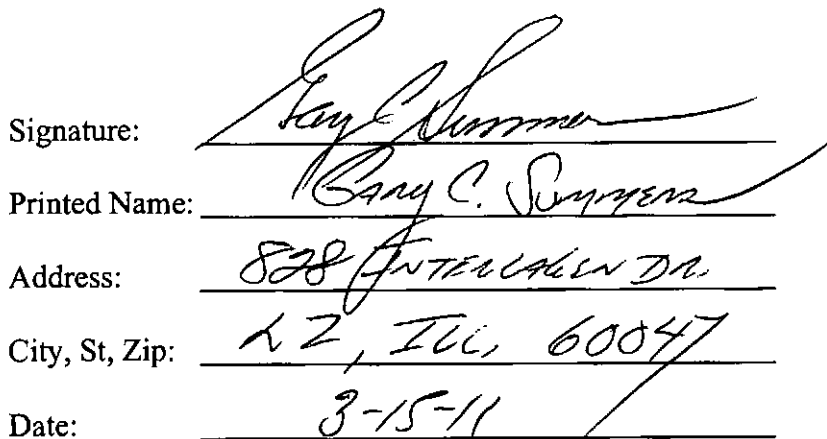 Signature: Gary C Summers
Printed Name: Gary C. Summers
Address: 828 INTERLAKEN DR.
City, St, Zip: LZ, ILL, 60047
Date: 3-15-11